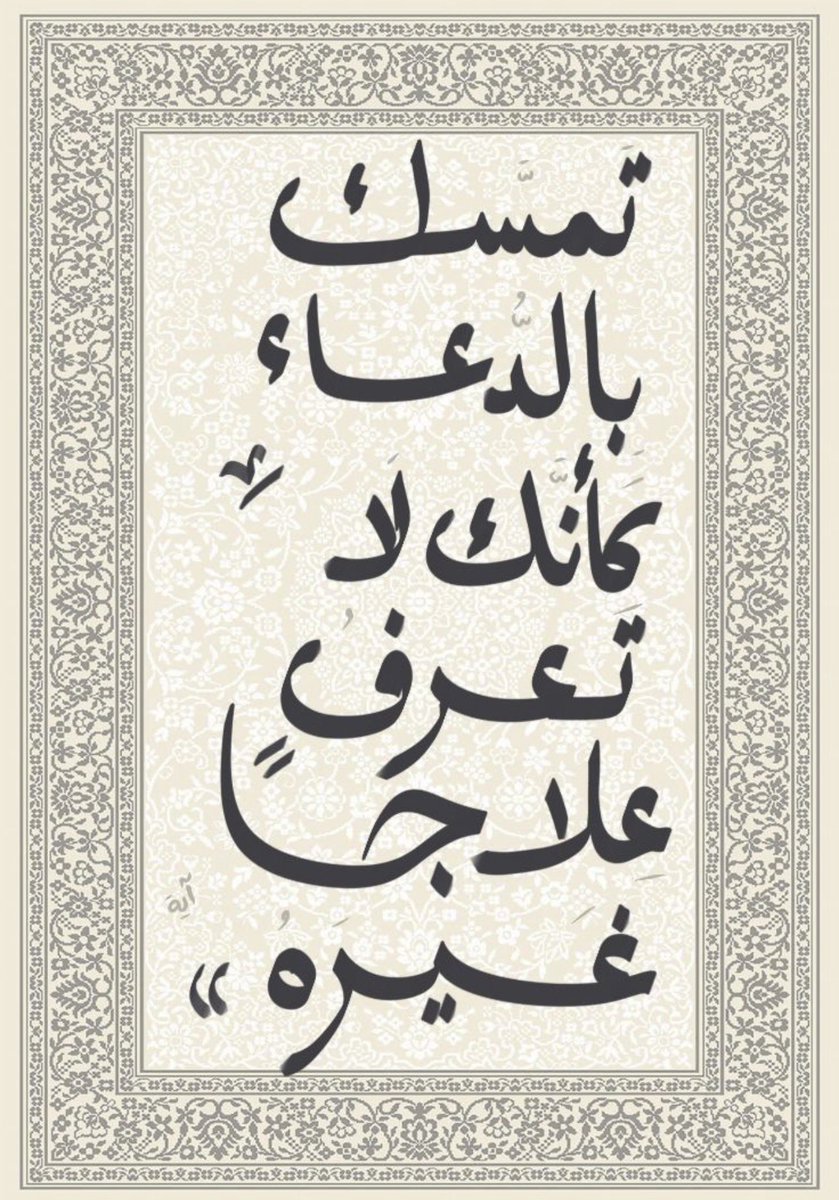 تَمسَّك
بالدُّعاء
كَأَنَّك لَا
تَعرفُ
عِلاجًا
غَيرَهُ »
آية